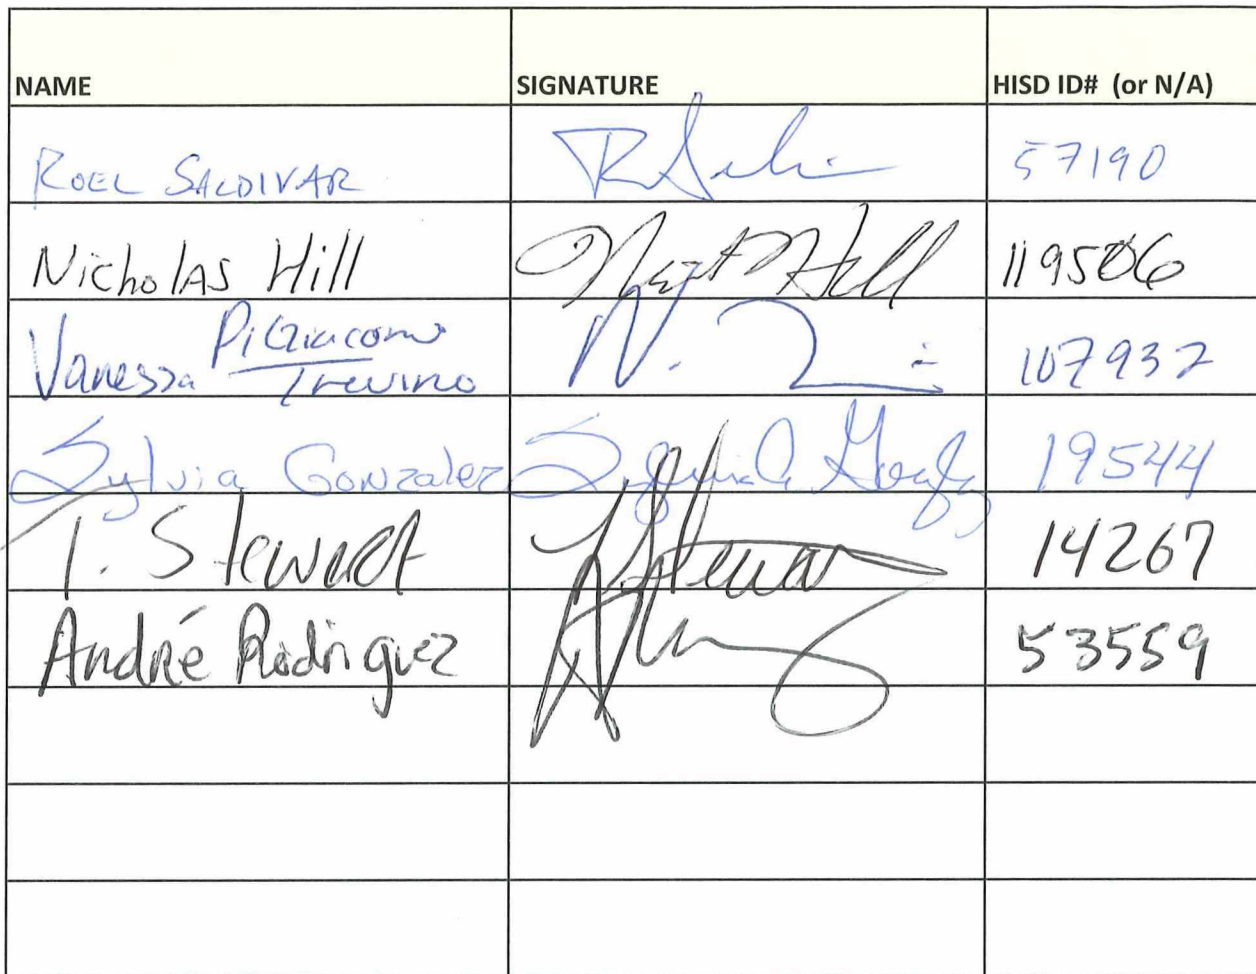 NAME SIGNATURE HISD ID# (or N/A)
ROEL SALDIVAR 57190
Nicholas Hill 119506
Vanessa DiGiacomo Trevino 107937
Sylvia Gonzalez 19544
T. Stewart 14267
André Rodriguez 53559